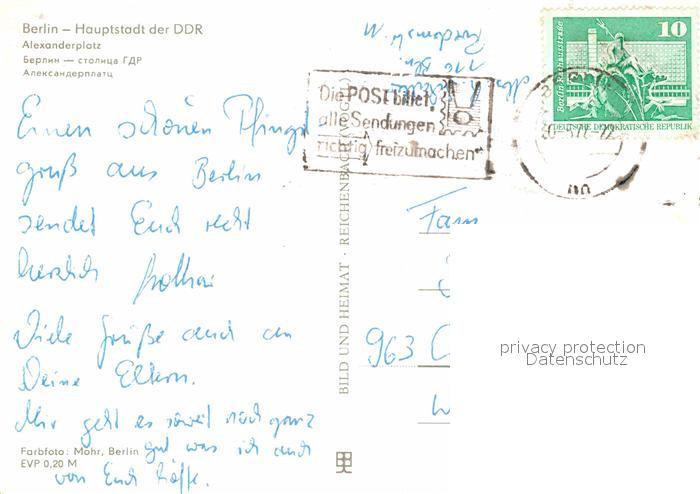 Berlin – Hauptstadt der DDR
Alexanderplatz
Берлин — столица ГДР
Александерплатц
Einen schönen Pfingst
gruß aus Berlin
sendet Euch recht
herzlich Lothar
Viele Grüße auch an
Deine Eltern.
Mir geht es soweit noch ganz
gut was ich auch
von Euch hoffe.
Farbfoto: Mohr, Berlin
EVP 0,20 M
BILD UND HEIMAT · REICHENBACH (VOGTL)
Die POST bittet,
alle Sendungen
richtig freizumachen
10
Berlin-Rathausstraße
DEUTSCHE DEMOKRATISCHE REPUBLIK
Fam
963 C
privacy protection
Datenschutz